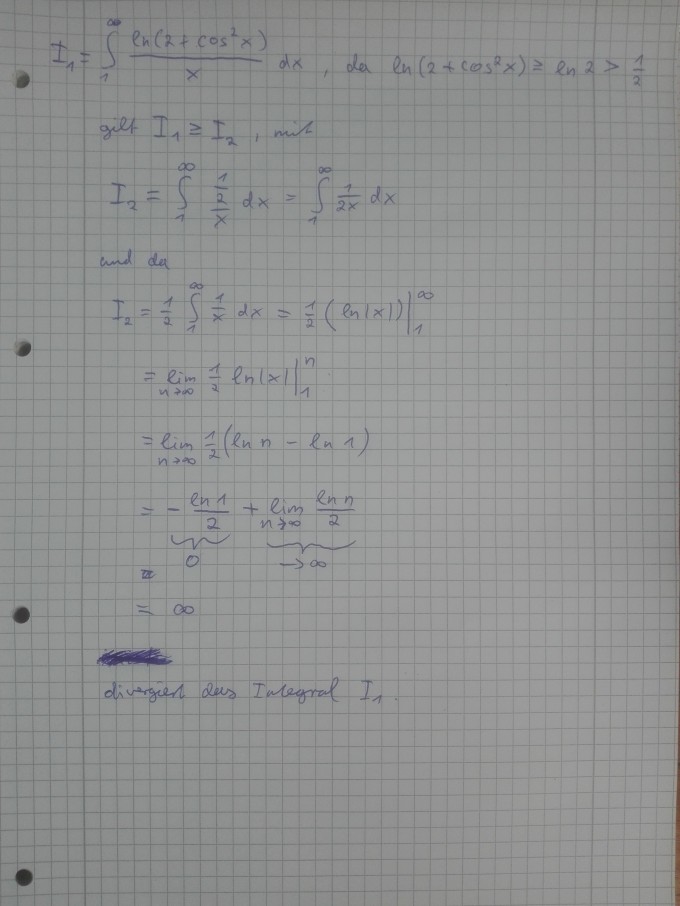 I₁ = ∫₁^∞ ln(2 + cos²x)/x dx , da ln(2 + cos²x) ≥ ln 2 > 1/2
gilt I₁ ≥ I₂ , mit
I₂ = ∫₁^∞ (1/2)/x dx = ∫₁^∞ 1/(2x) dx
und da
I₂ = 1/2 ∫₁^∞ 1/x dx = 1/2 (ln|x|)|₁^∞
= lim_{n→∞} 1/2 ln|x| |₁^n
= lim_{n→∞} 1/2 (ln n − ln 1)
= − ln 1/2 + lim_{n→∞} ln n/2
0 → ∞
=
= ∞
divergiert das Integral I₁.